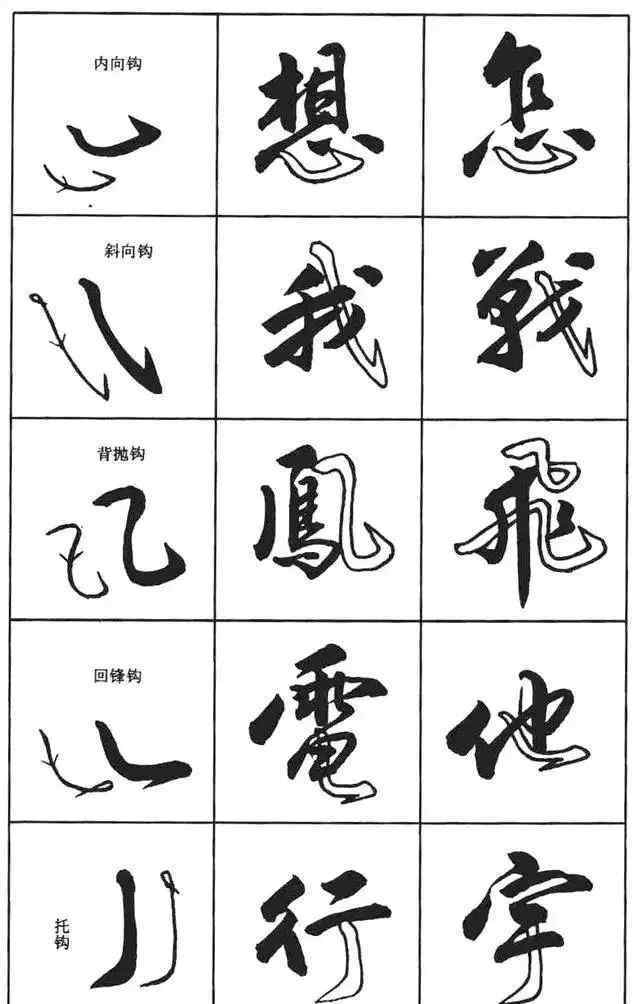 内向钩
想
怎
斜向钩
我
戰
背抛钩
鳳
飛
回锋钩
電
他
托钩
行
宇